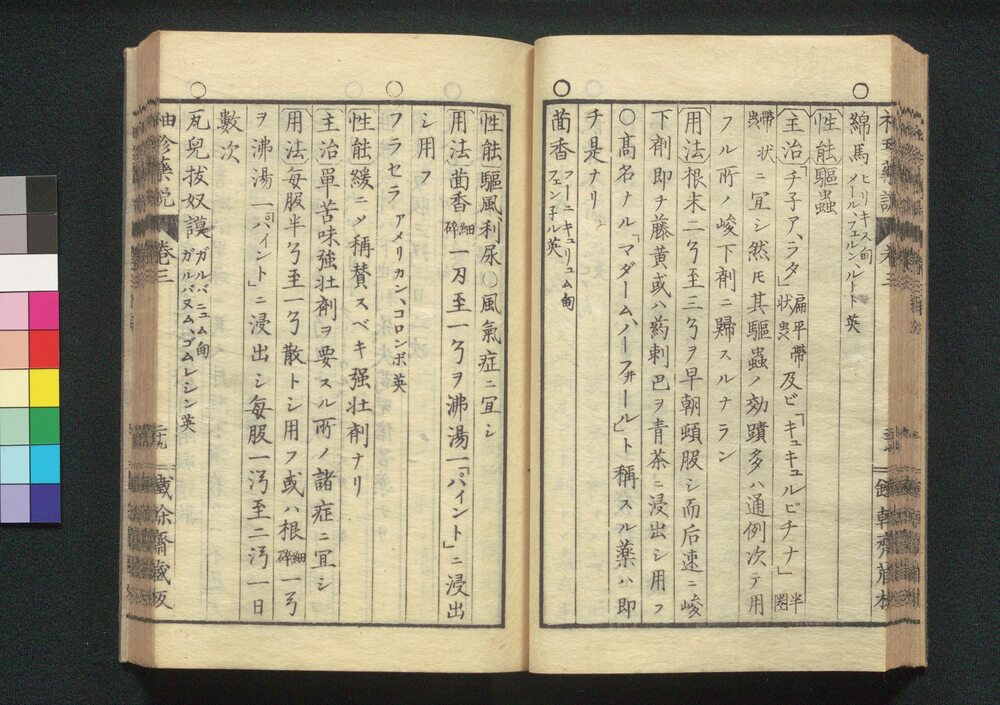 ○
綿馬 ヒリキス甸 メール、フェルン、ルート英
性能 驅蟲
主治 「チ子ア、ラタ」扁平帶状蟲及ビ「キュキュルビチナ」半圏
帶状蟲ニ宜シ然モ其驅蟲ノ効蹟多ハ通例次テ用
フル所ノ峻下劑ニ歸スルナラン
用法 根末二ゟ至三ゟヲ早朝頓服シ而后速ニ峻
下劑即チ藤黄或ハ葯剌巴ヲ青茶ニ浸出シ用フ
○髙名ナル「マダームハーフォール」ト稱スル薬ハ即
チ是ナリ
○
茴香 フーニキュリュム甸 フェン子ル英
性能 驅風利尿○風氣症ニ宜シ
用法 茴香細碎一刀至一ゟヲ沸湯一「パイント」ニ浸出
シ用フ
○
フラセラ アメリカン、コロンボ英
性能 緩ニメ稱賛スベキ强壮劑ナリ
主治 單苦味强壮劑ヲ要スル所ノ諸症ニ宜シ
用法 每服半ゟ至一ゟ散トシ用フ或ハ根細碎一ゟ
ヲ沸湯一「パイント」ニ浸出シ每服一㳑至二㳑一日
數次
○
瓦兒抜奴謨 ガルバニュム甸 ガルバヌム、ゴムレシン英
袖珍藥説 卷三